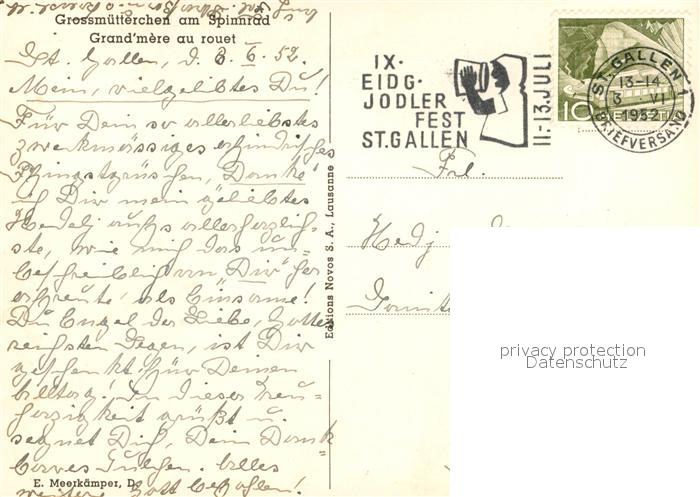 Grossmütterchen am Spinnrad
Grand'mère au rouet
St. Gallen, d. 3. 6. 52.
Mein, vielgeliebtes Du!
Für Dein so allerliebstes
zweckmässiges erfindrisches
Pfingstgrüsschen, "Danke"
ich Dir mein geliebtes
Hedelj aufs allerherzlich-
ste, wie mich das un-
beschreiblich von "Dir" her
erfreute, als Einsame!
Du Engel der Liebe, Gottes
reichsten Segen, ist Dir
geschenkt für Deinen
Alltag! In dieser treu-
herzigkeit grüßt u.
segnet Dich, Dein Dank-
bares Julchen. Alles
weitere Gott befohlen!
E. Meerkämper, D
Editions Novos S. A., Lausanne
IX.
EIDG.
JODLER
FEST
ST.GALLEN
11.-13.JULI
ST. GALLEN 1
13-14
3. VI.
1952
BRIEFVERSAND
10 HELVETIA
Frl.
Hedj
privacy protection
Datenschutz